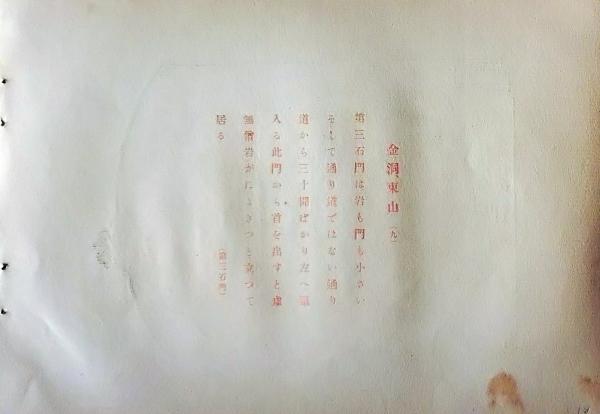 金洞東山（九）
第三石門は岩も門も小さい
そして通り道ではない通り
道から三十間ばかり左へ這
入る此門から首を出すと虚
無僧岩がによきつと立つて
居る
（第三石門）